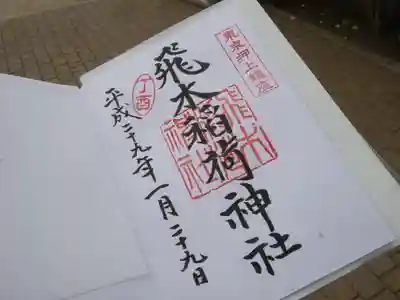 東京押上鎮座
飛木稲荷神社
丁酉
平成二十九年一月二十九日